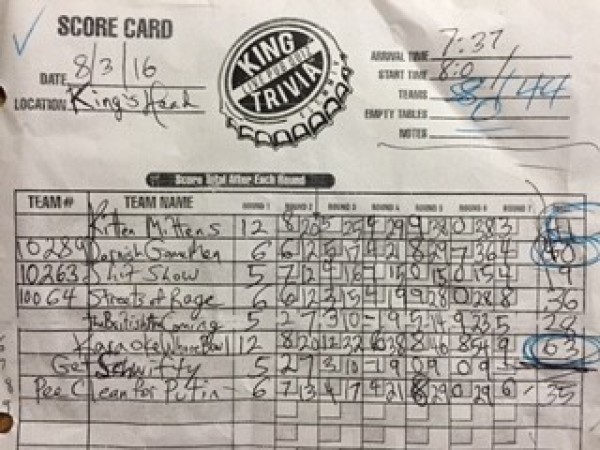 SCORE CARD
DATE 8/3/16
LOCATION King's Head
KING
LIVE PUB QUIZ
TRIVIA
ARRIVAL TIME 7:37
START TIME 8:0
TEAMS 8/44
EMPTY TABLES 0
NOTES
Score Total After Each Round
TEAM# TEAM NAME ROUND 1 ROUND 2 ROUND 3 ROUND 4 ROUND 5 ROUND 6 ROUND 7
Kitten Mittens 12 8 20 5 25 4 29 9 38 0 38 3
10289 Gamemen 6 6 12 5 17 4 21 8 29 7 36 4 40
10263 Shit Show 5 7 12 4 16 15 0 15 0 15 4 19
10064 Streets of Rage 6 6 12 3 15 4 19 9 28 0 28 8 36
the British are Coming 5 2 7 3 10 -1 9 5 14 9 23 5 28
Karaoke 12 8 20 12 32 38 8 46 8 54 9 63
Get Schwifty 5 2 7 3 10 -1 9 0 9 0 9
Pee Clean for Putin 6 7 13 4 17 4 21 8 29 0 29 6 35